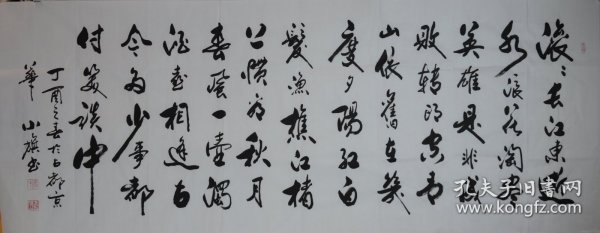 滚〻长江东逝
水浪花淘尽
英雄是非成
败转头空青
山依舊在幾
度夕陽红白
髮漁樵江楮
上惯看秋月
春風一壶濁
酒喜相逢古
今多少事都
付笑谈中
丁酉之春於古都京
華 小旗书
孔夫子旧书网
www.kongfz.com